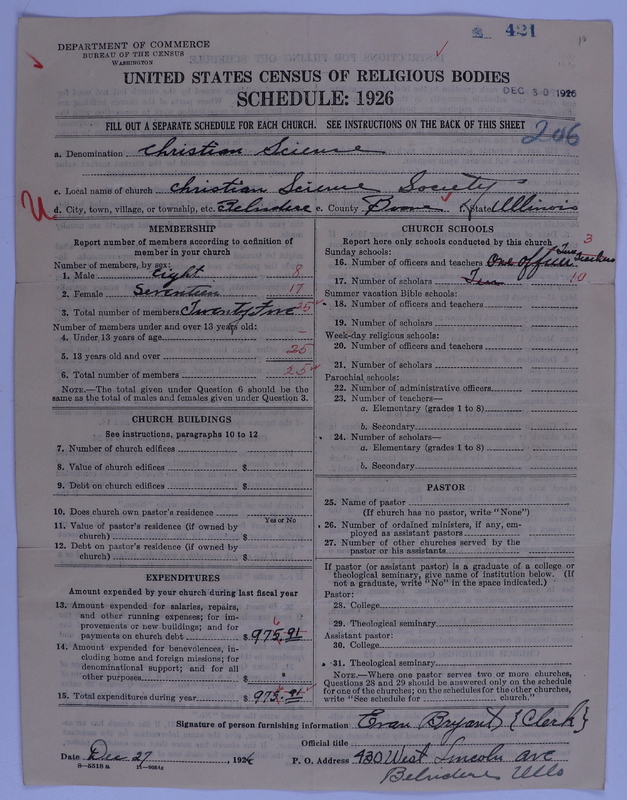 421
DEPARTMENT OF COMMERCE
BUREAU OF THE CENSUS
WASHINGTON
UNITED STATES CENSUS OF RELIGIOUS BODIES
SCHEDULE: 1926
DEC 30 1926
FILL OUT A SEPARATE SCHEDULE FOR EACH CHURCH. SEE INSTRUCTIONS ON THE BACK OF THIS SHEET
206
a. Denomination Christian Science
c. Local name of church Christian Science Society
d. City, town, village, or township, etc. Belvidere e. County Boone f. State Illinois
MEMBERSHIP
Report number of members according to definition of
member in your church
Number of members, by sex:
1. Male Eight 8
2. Female Seventeen 17
3. Total number of members Twenty Five 25
Number of members under and over 13 years old:
4. Under 13 years of age –
5. 13 years old and over 25
6. Total number of members 25
NOTE.—The total given under Question 6 should be the
same as the total of males and females given under Question 3.
CHURCH BUILDINGS
See instructions, paragraphs 10 to 12
7. Number of church edifices
8. Value of church edifices $
9. Debt on church edifices $
10. Does church own pastor's residence
Yes or No
11. Value of pastor's residence (if owned by
church) $
12. Debt on pastor's residence (if owned by
church) $
EXPENDITURES
Amount expended by your church during last fiscal year
13. Amount expended for salaries, repairs,
and other running expenses; for im-
provements or new buildings; and for
payments on church debt $ 975.91 6
14. Amount expended for benevolences, in-
cluding home and foreign missions; for
denominational support; and for all
other purposes $
15. Total expenditures during year $ 975.91
CHURCH SCHOOLS
Report here only schools conducted by this church
Sunday schools: 3
16. Number of officers and teachers One officer Two Teachers
17. Number of scholars Ten 10
Summer vacation Bible schools:
18. Number of officers and teachers
19. Number of scholars
Week-day religious schools:
20. Number of officers and teachers
21. Number of scholars
Parochial schools:
22. Number of administrative officers
23. Number of teachers—
a. Elementary (grades 1 to 8)
b. Secondary
24. Number of scholars—
a. Elementary (grades 1 to 8)
b. Secondary
PASTOR
25. Name of pastor
(If church has no pastor, write "None")
26. Number of ordained ministers, if any, em-
ployed as assistant pastors
27. Number of other churches served by the
pastor or his assistants
If pastor (or assistant pastor) is a graduate of a college or
theological seminary, give name of institution below. (If
not a graduate, write "No" in the space indicated.)
Pastor:
28. College
29. Theological seminary
Assistant pastor:
30. College
31. Theological seminary
NOTE.—Where one pastor serves two or more churches,
Questions 28 and 29 should be answered only on the schedule
for one of the churches; on the schedules for the other churches,
write "See schedule for church."
Signature of person furnishing information Evan Bryant {Clerk}
Official title
Date Dec 27, 1926 P. O. Address 420 West Lincoln Ave
8—5518 a
Belvidere Ills